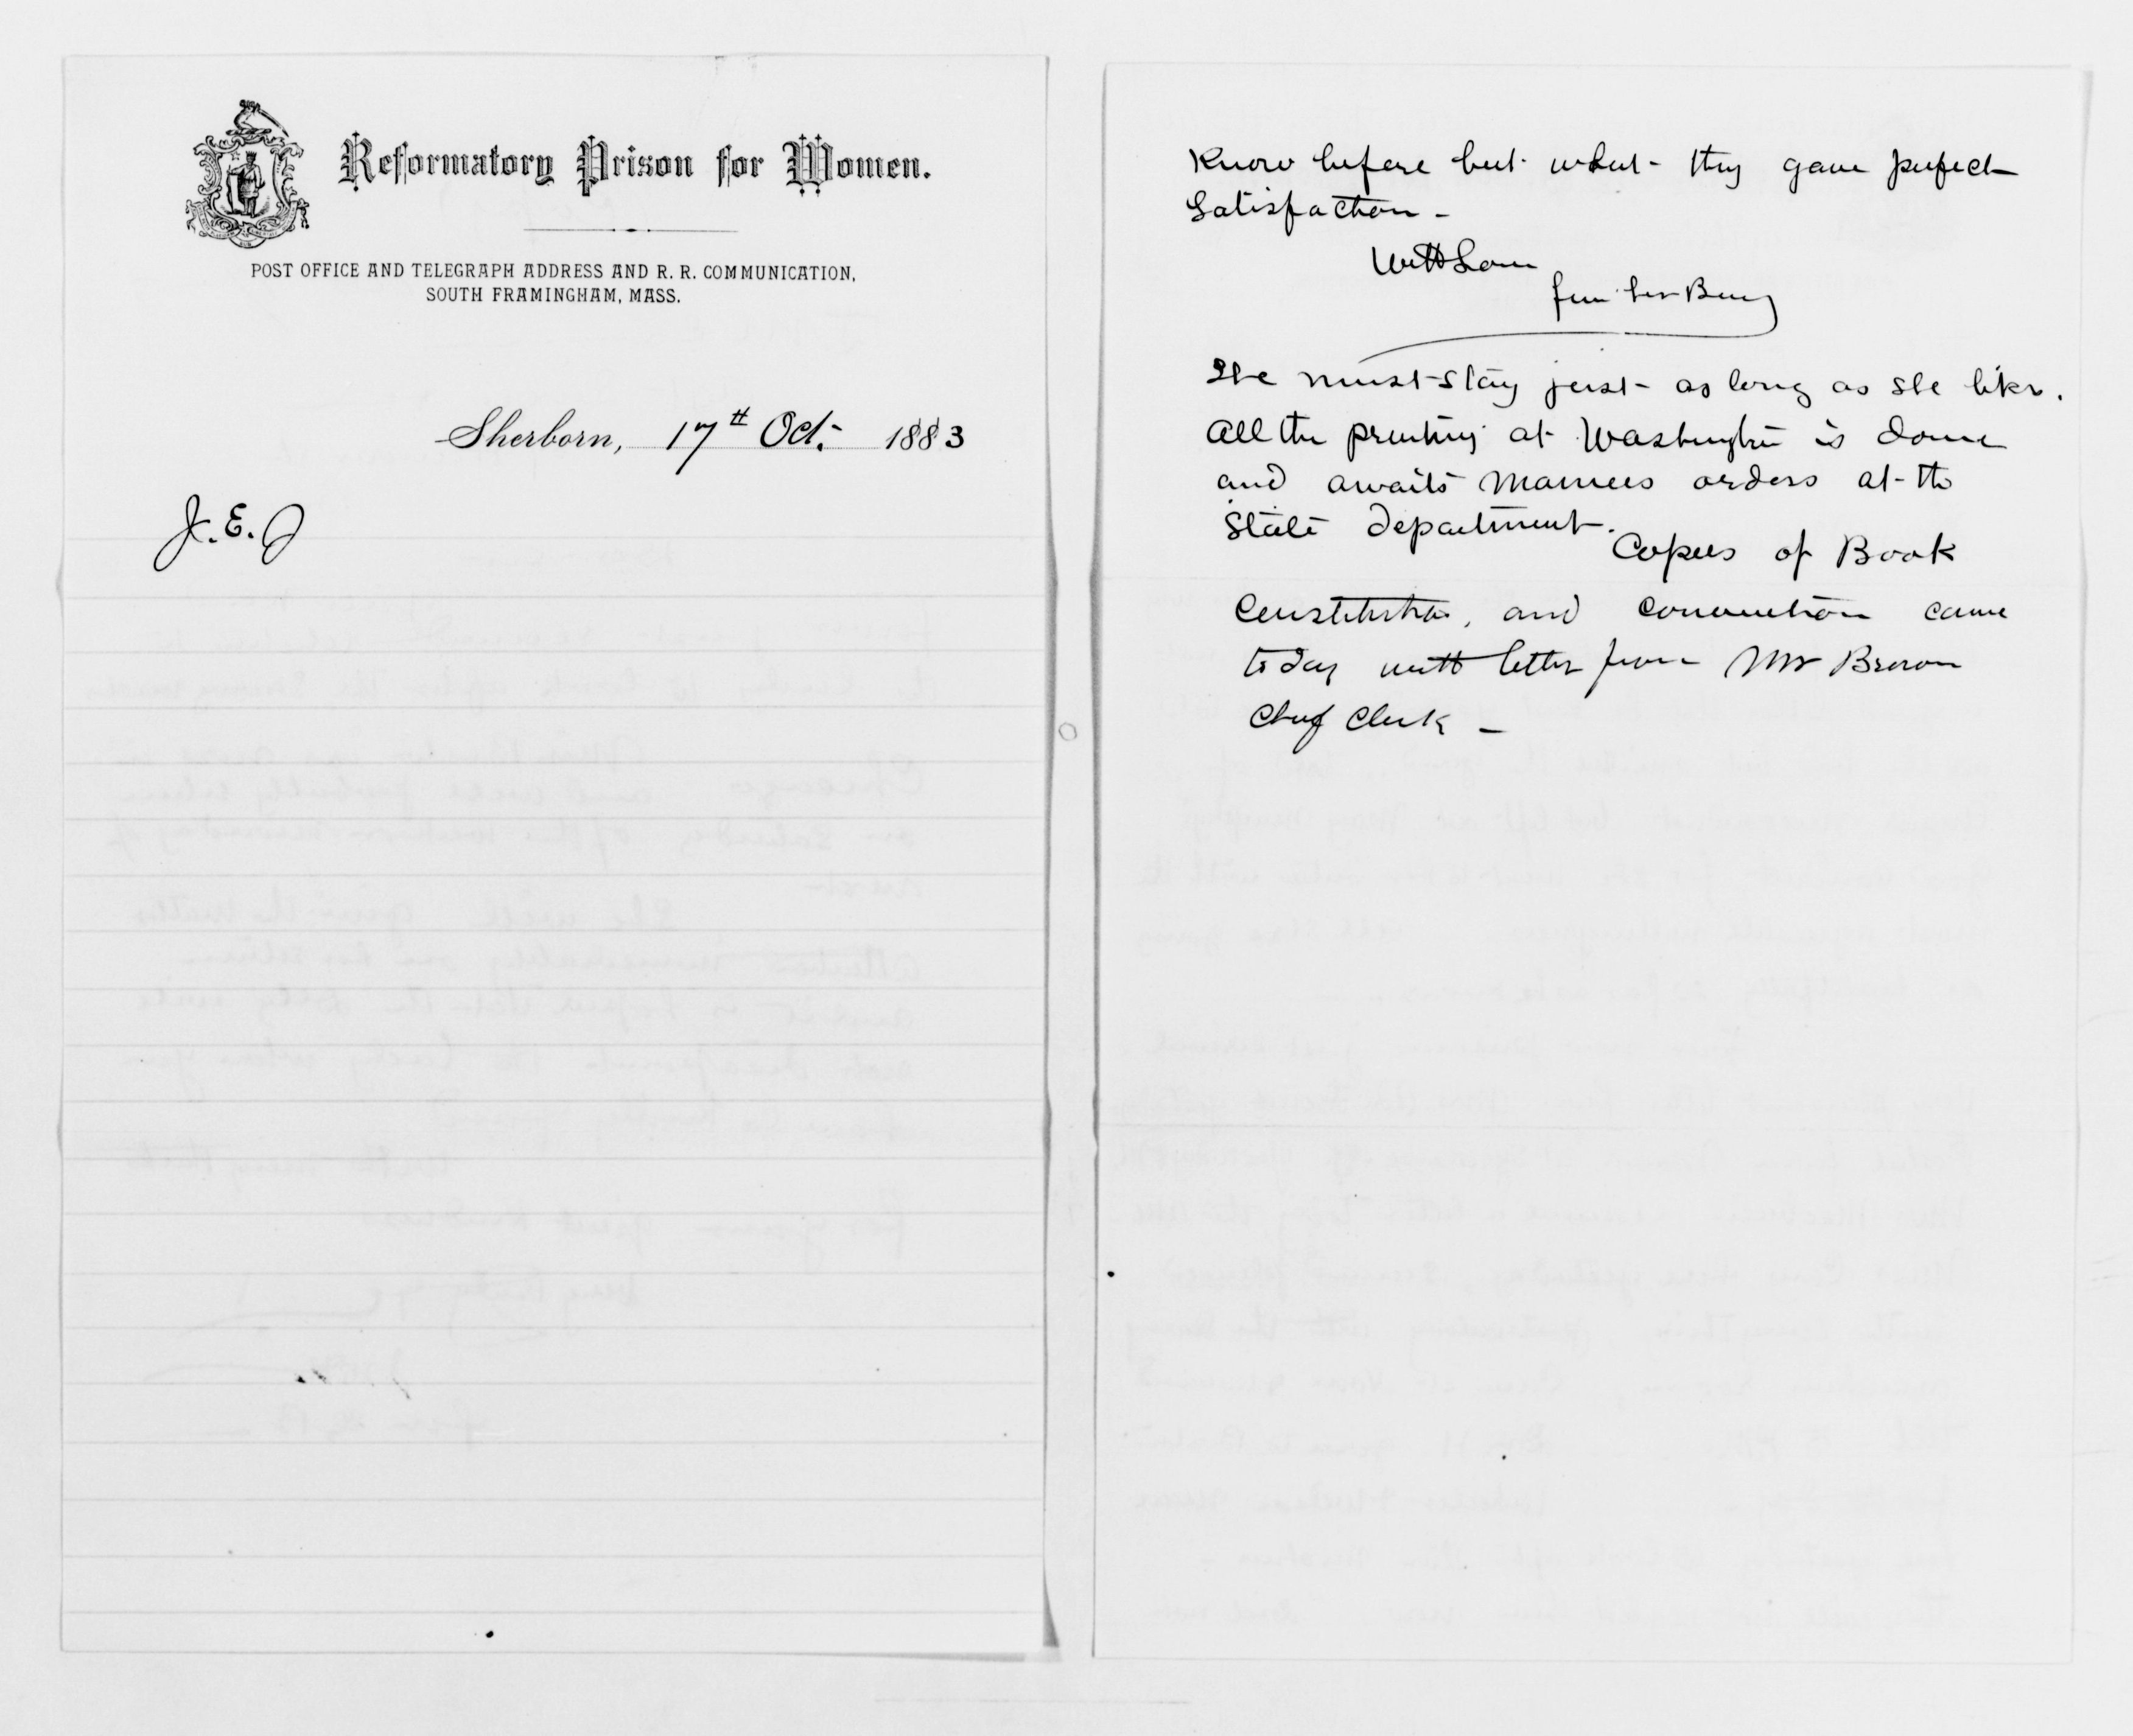 Reformatory Prison for Women.
POST OFFICE AND TELEGRAPH ADDRESS AND R. R. COMMUNICATION,
SOUTH FRAMINGHAM, MASS.
Sherborn, 17th Oct. 1883
J. E. J
Know before but what they gave perfect
Satisfaction -
With Love
from Ben
She must stay just as long as she likes.
All the printing at Washington is done
and awaits Mamies orders at the
State Department.
Copies of Book
Constitution, and Convention came
today with letter from Mr Brown
Chief Clerk -